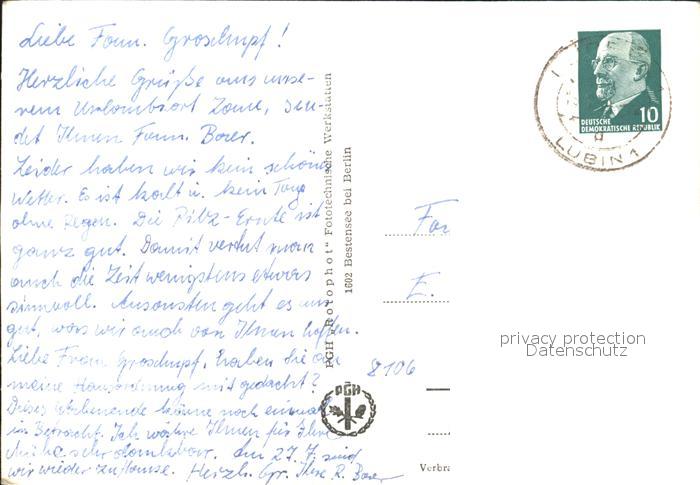 Liebe Fam. Groschupf!
Herzliche Grüße aus unse-
rem Urlaubsort Zone, sen-
det Ihnen Fam. Baer.
Leider haben wir kein schönes
Wetter. Es ist kalt u. kein Tag
ohne Regen. Die Pilz-Ernte ist
ganz gut. Damit verbringt man
auch die Zeit wenigstens etwas
sinnvoll. Ansonsten geht es uns
gut, was wir auch von Ihnen hoffen.
Liebe Frau Groschupf, haben Sie an
meine Hausordnung mit gedacht?
Dieses Wochenende käme noch einmal
in Betracht. Ich wäre Ihnen für Ihre
Mühe sehr dankbar. Am 27. 7. sind
wir wieder zuhause. Herzl. Gr. Ihre R. Baer
PGH „Rotophot“ Fototechnische Werkstätten
1602 Bestensee bei Berlin
Fa
E.
8106
PGH
Verbra
10
DEUTSCHE
DEMOKRATISCHE REPUBLIK
LUBIN 1
privacy protection
Datenschutz